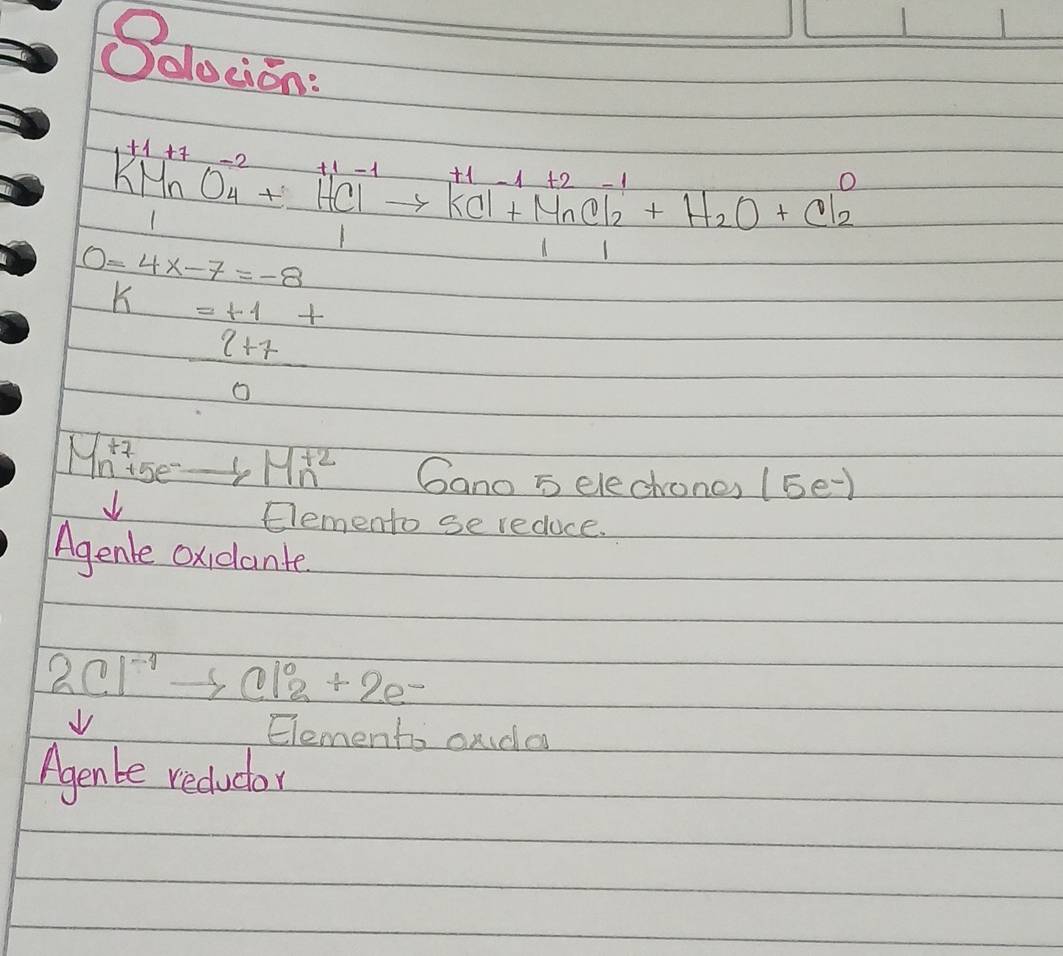 Solución:
+1 +7 -2 +1 -1 +1 -1 +2 -1 0
KMnO4 + HCl → KCl + MnCl2 + H2O + Cl2
1 1 1 1
O = 4x-7 = -8
K = +1 +
?+7
0
Mn+7 +5e- → Mn+2 Gano 5 electrones (5e-)
↓ Elemento se reduce.
Agente oxidante.
2Cl-1 → Cl2° + 2e-
↓ Elemento oxida
Agente reductor